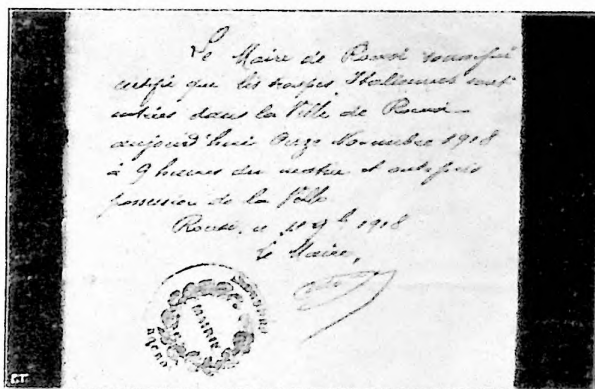 Le Maire de Rocroi soussigné
certifie que les troupes Italiennes sont
entrées dans la Ville de Rocroi
aujourd'hui Onze Novembre 1918
à 9 heures du matin et ont pris
possession de la Ville
Rocroi, ce 11 9b 1918
Le Maire,
MAIRIE
GT